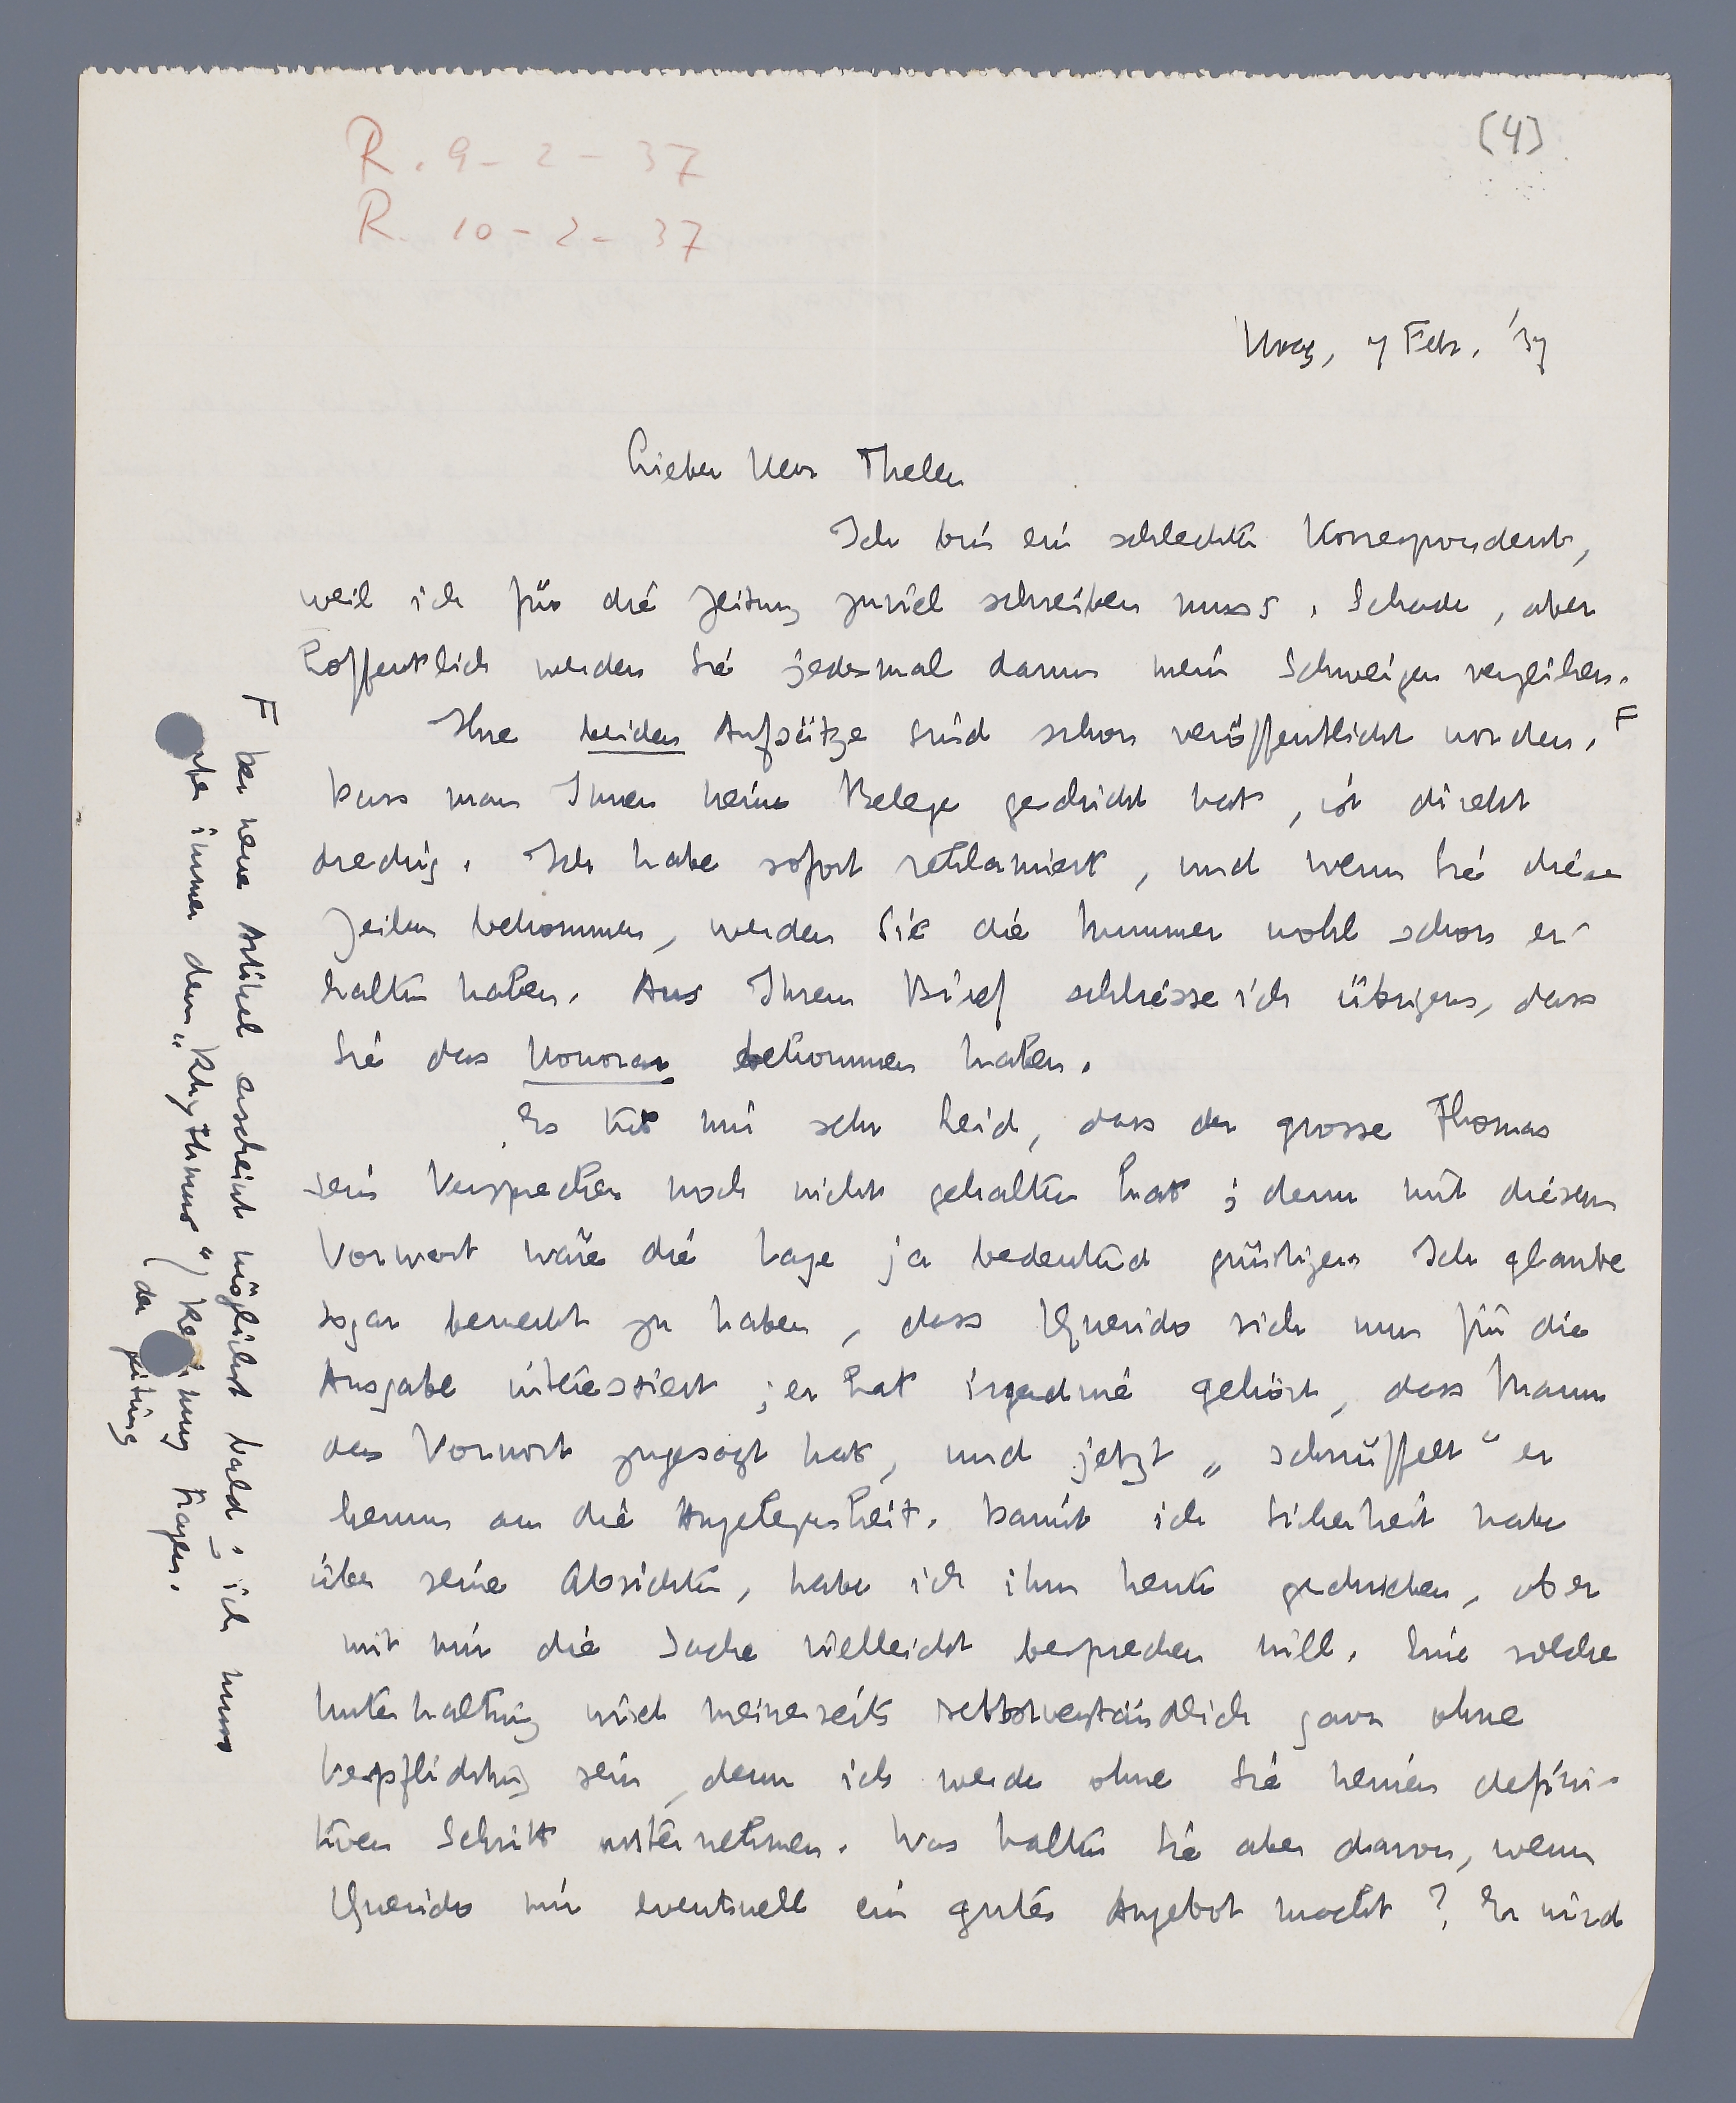 (4)
R. 9-2-37
R. 10-2-37
Haag, 7 Febr. '37
Lieber Herr Thelen
Ich bin ein schlechter Korrespondent,
weil ich für die Zeitung zuviel schreiben muss. Schade, aber
hoffentlich werden Sie jedesmal darum mein Schweigen verzeihen.
Ihre beiden Aufsätze sind schon veröffentlicht worden. F
Dass man Ihnen keine Belege geschickt hat, ist direkt
dreckig. Ich habe sofort reklamiert, und wenn Sie diese
Zeilen bekommen, werden Sie die Nummer wohl schon er-
halten haben. Aus Ihrem Brief schliesse ich übrigens, dass
Sie das Honorar bekommen haben.
Es tut mir sehr Leid, dass der grosse Thomas
sein Versprechen noch nicht gehalten hat; denn mit diesem
Vorwort wäre die Lage ja bedeutend günstiger. Ich glaube
sogar bemerkt zu haben, dass Querido sich nun für die
Ausgabe interessiert; er hat irgendwie gehört, dass Mann
das Vorwort zugesagt hat, und jetzt „schnüffelt" er
herum an die Angelegenheit. Damit ich Sicherheit habe
über seine Absichten, habe ich ihm heute geschrieben, ob er
mit mir die Sache vielleicht besprechen will. Eine solche
Unterhaltung wird meinerseits selbstverständlich ganz ohne
Verpflichtung sein, denn ich werde ohne Sie keinen defini-
tiven Schritt unternehmen. Was halten Sie aber davon, wenn
Querido mir eventuell ein gutes Angebot macht? Er wird
F Der neue Artikel erscheint möglichst bald; ich muss
aber immer dem „Rhythmus" Rechnung tragen.
der Zeitung